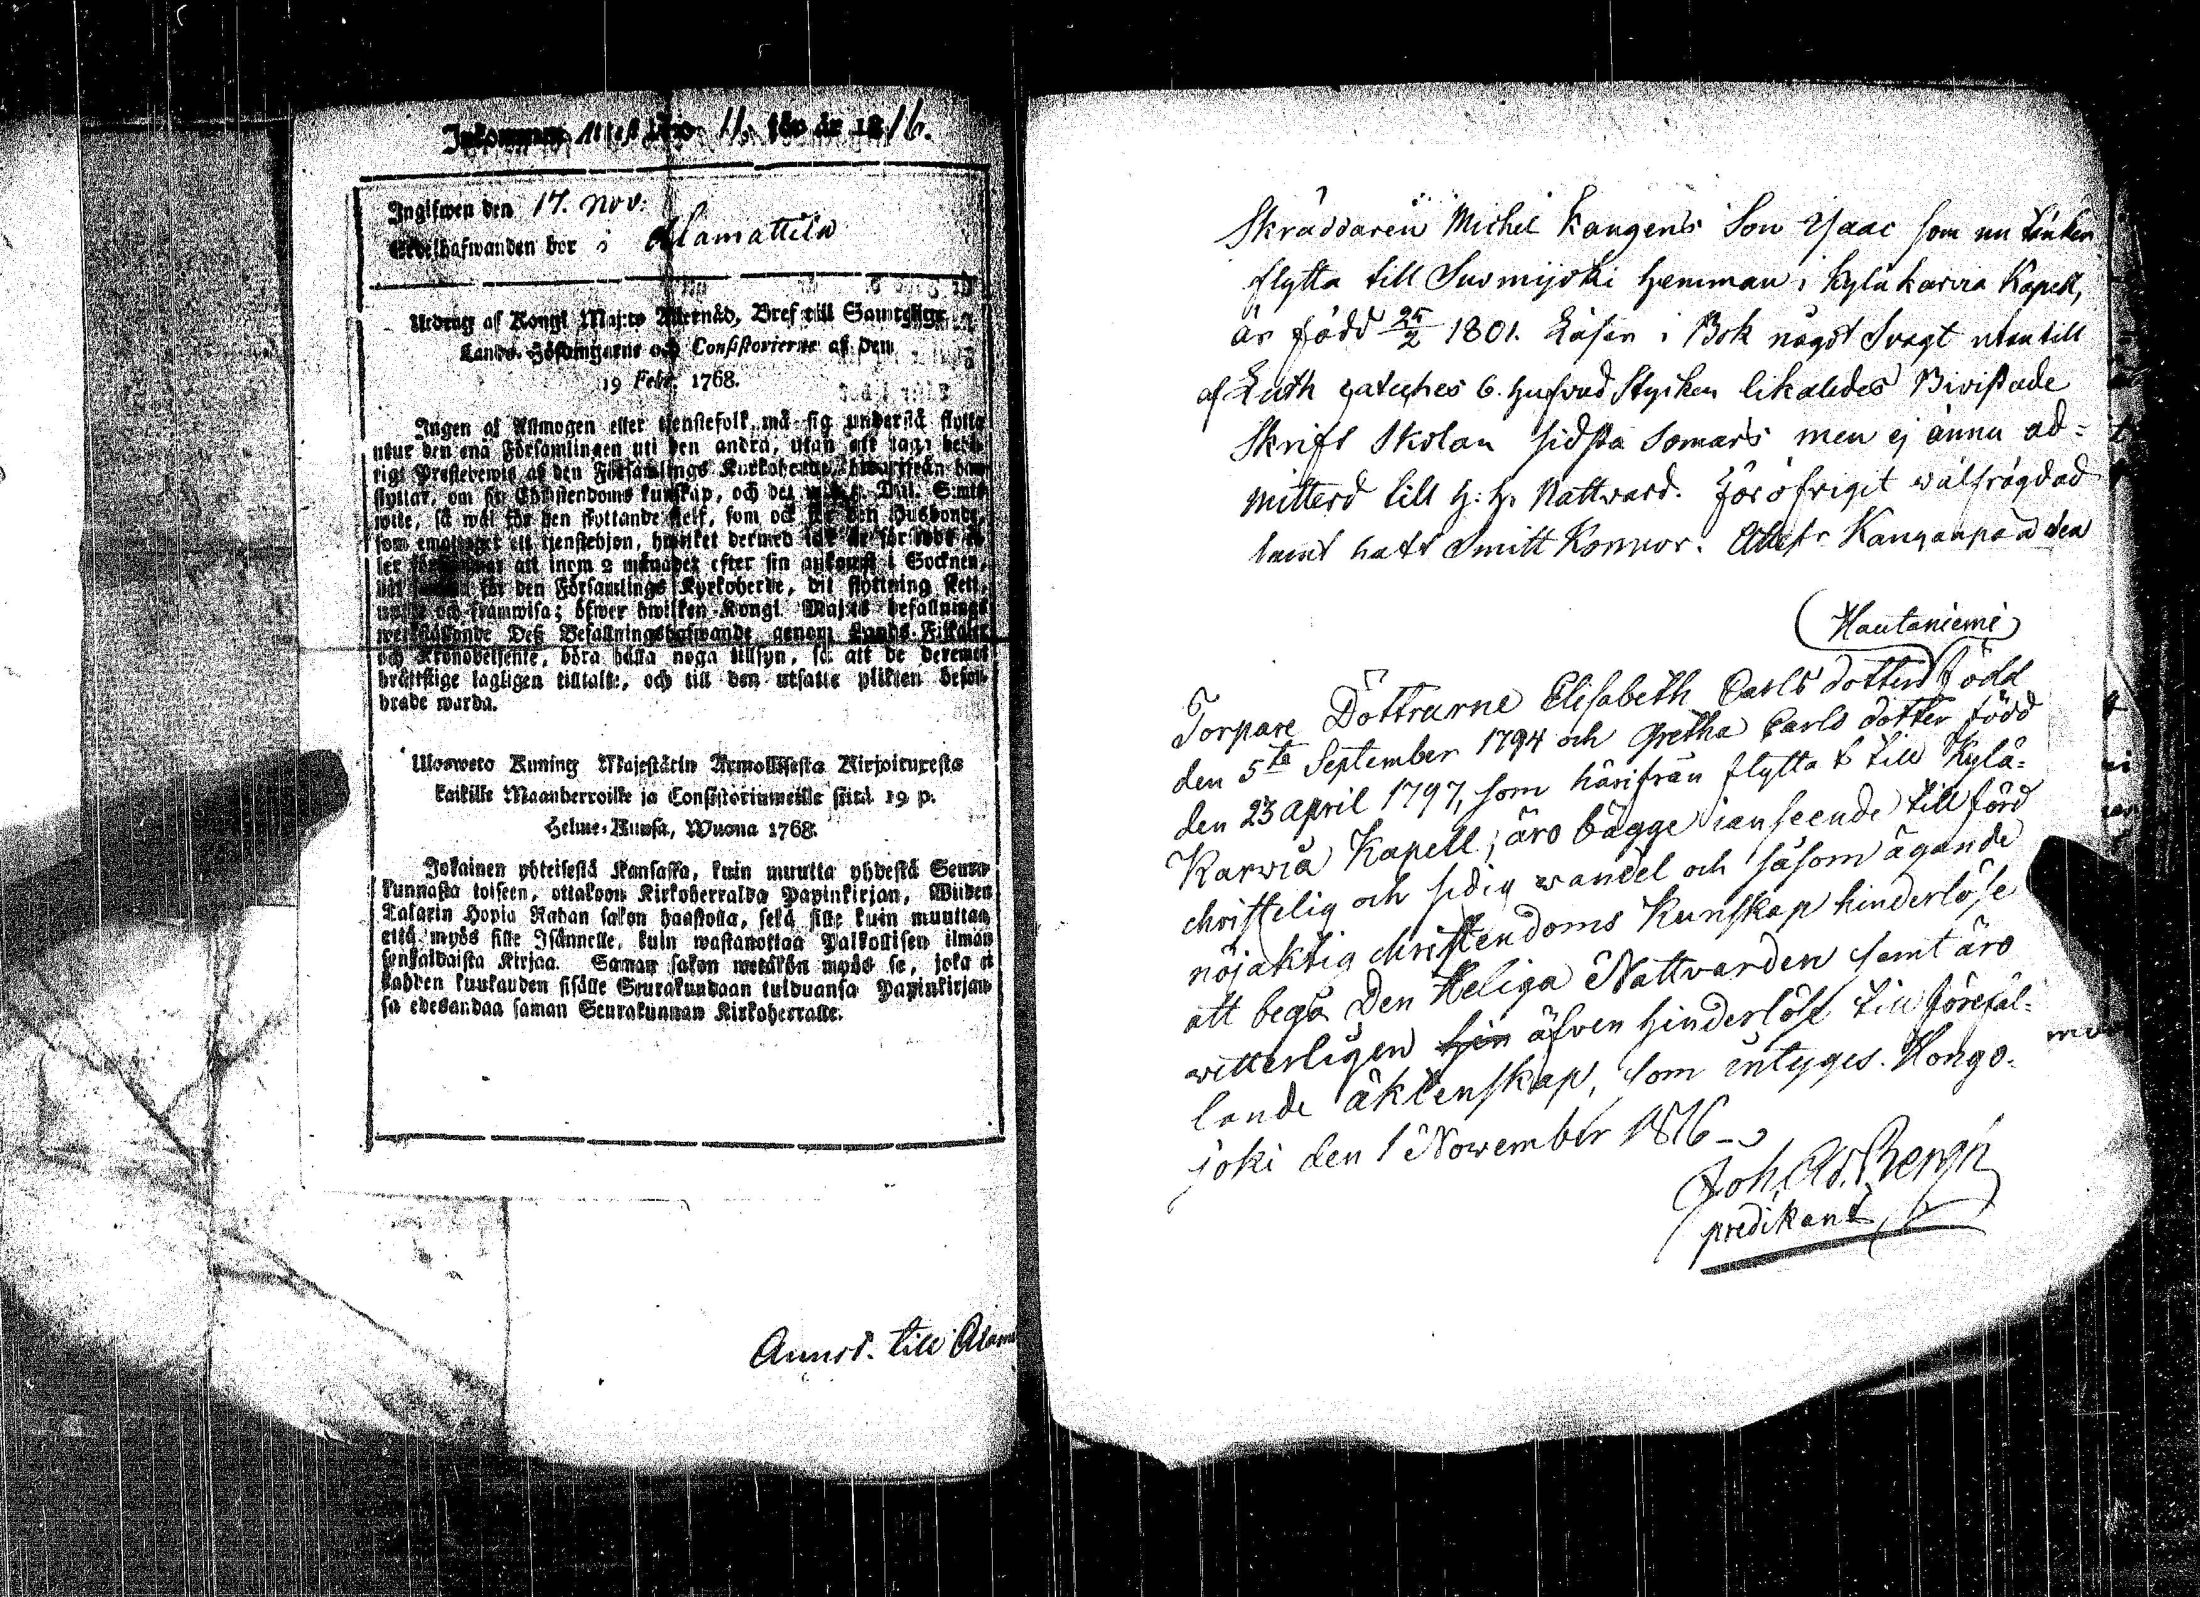 Inkommen Attest N:o 11. för år 1816.
Ingifwen den 17. Nov:
Innehafwanden bor i Alamattila
Utdrag af Kongl. Maj:ts Bref till Samtelige
Lands-Höfdingarne och Consistorierne af den
19 Febr. 1768.
Ingen af Allmogen eller tjenstefolk må sig understå flytta
utur den ena Församlingen uti den andra, utan att taga behö-
rigt Prestebewis af den Församlings Kyrkoherde, hwarifrån han
flyttar, om sin Christendoms kunskap, och det wid Dal. S:mts
wite, så wäl för den flyttande sielf, som ock för den Husbonde,
som emottaget ett tjenstehjon, hwilket dermed icke är försedt
att inom 2 månader efter sin ankomst i Socknen,
för den Församlings Kyrkoherde, dit flyttning skett,
och framwisa; öfwer hwilken Kongl. Maj:ts befallnings
werkställande Deß Befallningshafwande genom Lands-Fiskaler
och Kronobetjente, böra hålla noga tillsyn, så att de deremot
bråttslige lagligen tilltalte, och till den utsatte plikten befor-
drade warda.
Ulosweto Kuning. Majestätin Armollisesta Kirjoituxesta
kaikille Maanherroille ja Consistoriumeille siitä 19 p.
Helme-Kuusa, Wuona 1768.
Jokainen yhteisestä Kansasta, kuin muutta yhdestä Seura-
kunnasta toiseen, ottakoon Kirkoherralda Papinkirjan, Wiiden
Talarin Hopia Rahan sakon haastolla, sekä sille kuin muuttaa
että myös sille Isännelle, kuin wastanottaa Palkollisen ilman
senkaldaista Kirjaa. Saman sakon wetäkön myös se, joka ei
kahden kuukauden sisälle Seurakundaan tulduansa Papinkirjan-
sa edesandaa saman Seurakunnan Kirkoherralle.
Annot. till Alam
Skräddaren Michel Kangens Son Isaac som nu tänker
flytta till Suomijoki hemman i Kyläkarvia Kapell,
är född 25/2 1801. Läser i Bok något Svagt utantill
af Luth Cateches 6. hufvud Stycken likaledes Bivistade
Skrift Skolan sidsta Somars men ej ännu ad-
mitterd till H: H. Nattward. För öfrigit wälfrägdad
samt haft Smitt Koppor. Attest:r Kanganpää den
Hautaniemi
Torpare Döttrarne Elisabeth Carls dotter född
den 5ta September 1794 och Gretha Carls dotter född
den 23 April 1797, som härifrån flytta t till Kylä-
Karwia Kapell; äro bägge i anseende till förd
christelig och sedig wandel och såsom ägande
nöjaktig christendoms Kunskap hinderlöse
att begå Den Heliga Nattvarden samt äro
witterligen hin äfven hinderlöse till förefal-
lande äktenskap, som intyges. Hongo-
joki den 1 November 1816
Joh. Ad. Bergh
predikant